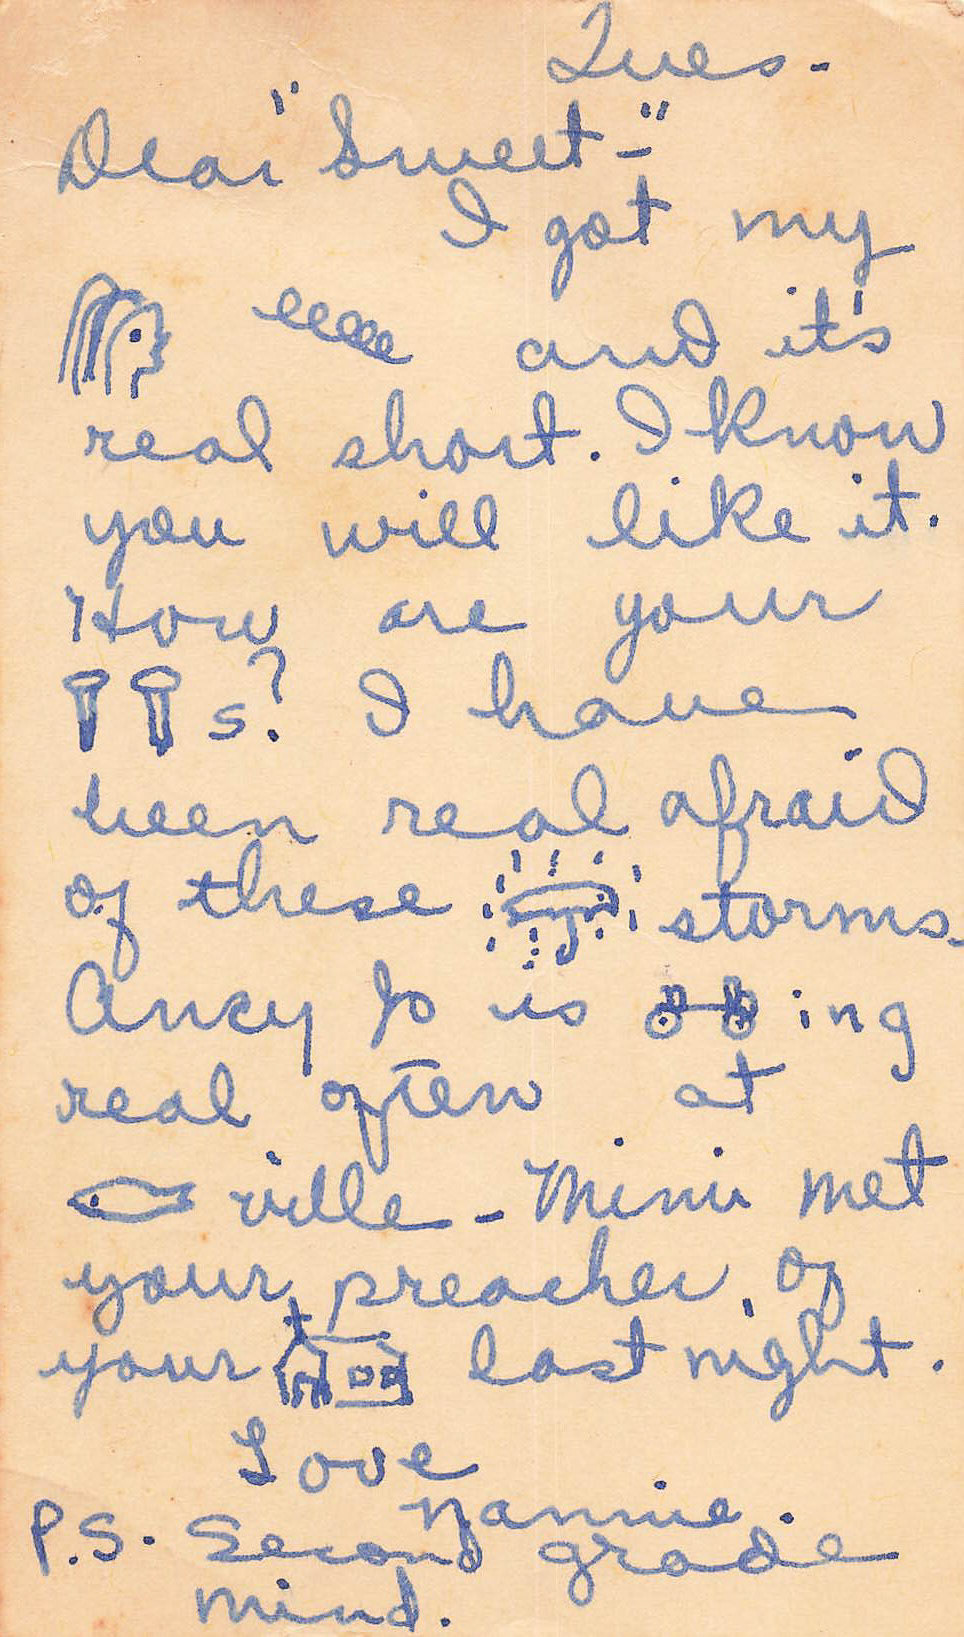 Tues-
Dear "Sweet-"
I got my
and it's
real short. I know
you will like it.
How are your
s? I have
been real afraid
of these storms.
Ancy Jo is ing
real often at
ville - Mimi met
your preacher, of
your last night.
Love
Nannie.
P.S. Second grade
mind.